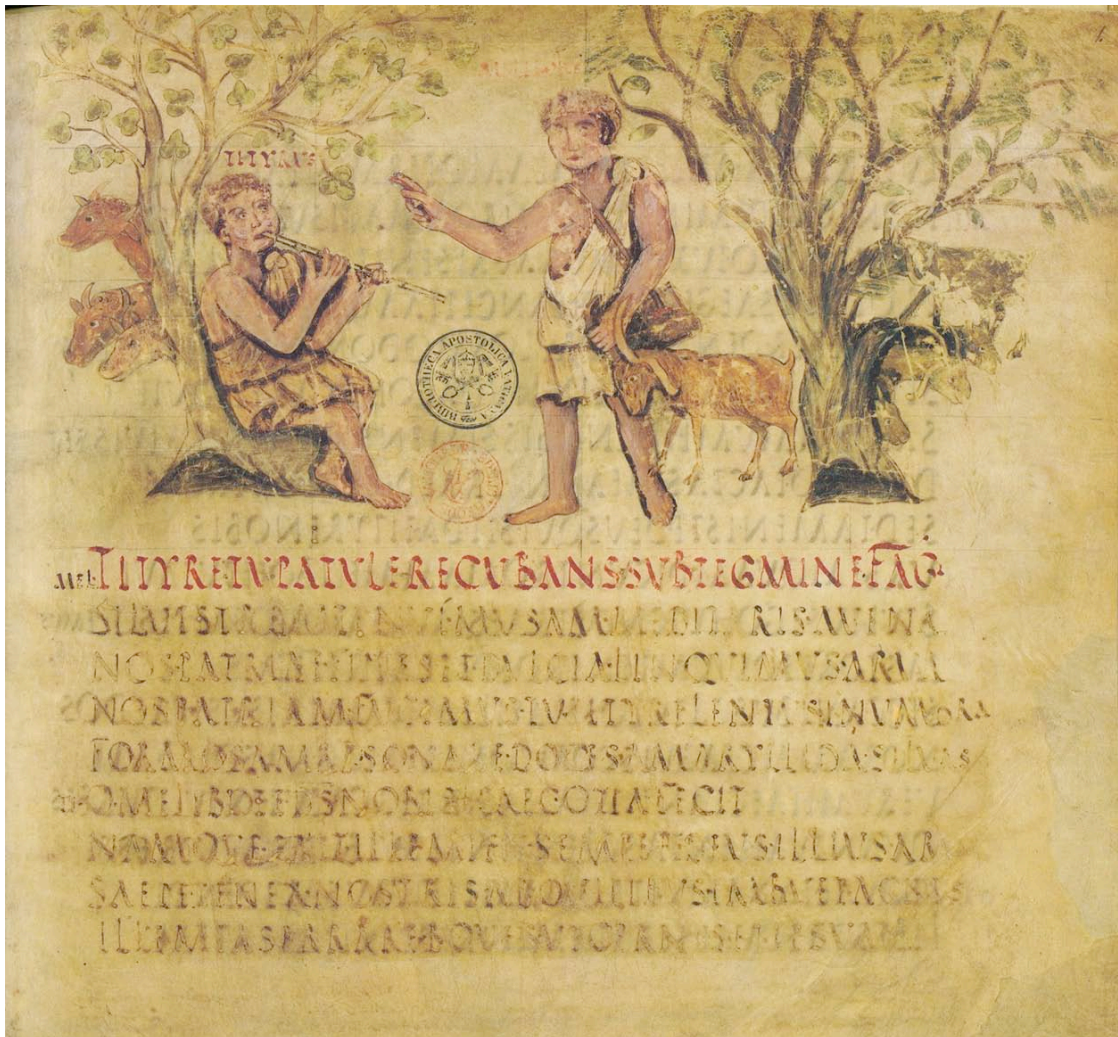 TITYRVS
BIBLIOTHECA APOSTOLICA VATICANA
MEL TITYRE·TV·PATVLE·RECVBANS·SVB·TEGMINE·FAGI
SILVESTREM·TENVI·MVSAM·MEDITARIS·AVENA
NOS·PATRIAE·FINES·ET·DVLCIA·LINQVIMVS·ARVA
NOS·PATRIAM·FVGIMVS·TV·TITYRE·LENTVS·IN·VMBRA
FORMOSAM·RESONARE·DOCES·AMARYLLIDA·SILVAS
O·MELIBOEE·DEVS·NOBIS·HAEC·OTIA·FECIT
NAMQVE·ERIT·ILLE·MIHI·SEMPER·DEVS·ILLIVS·ARAM
SAEPE·TENER·NOSTRIS·AB·OVILIBVS·IMBVET·AGNVS
ILLE·MEAS·ERRARE·BOVES·VT·CERNIS·ET·IPSVM